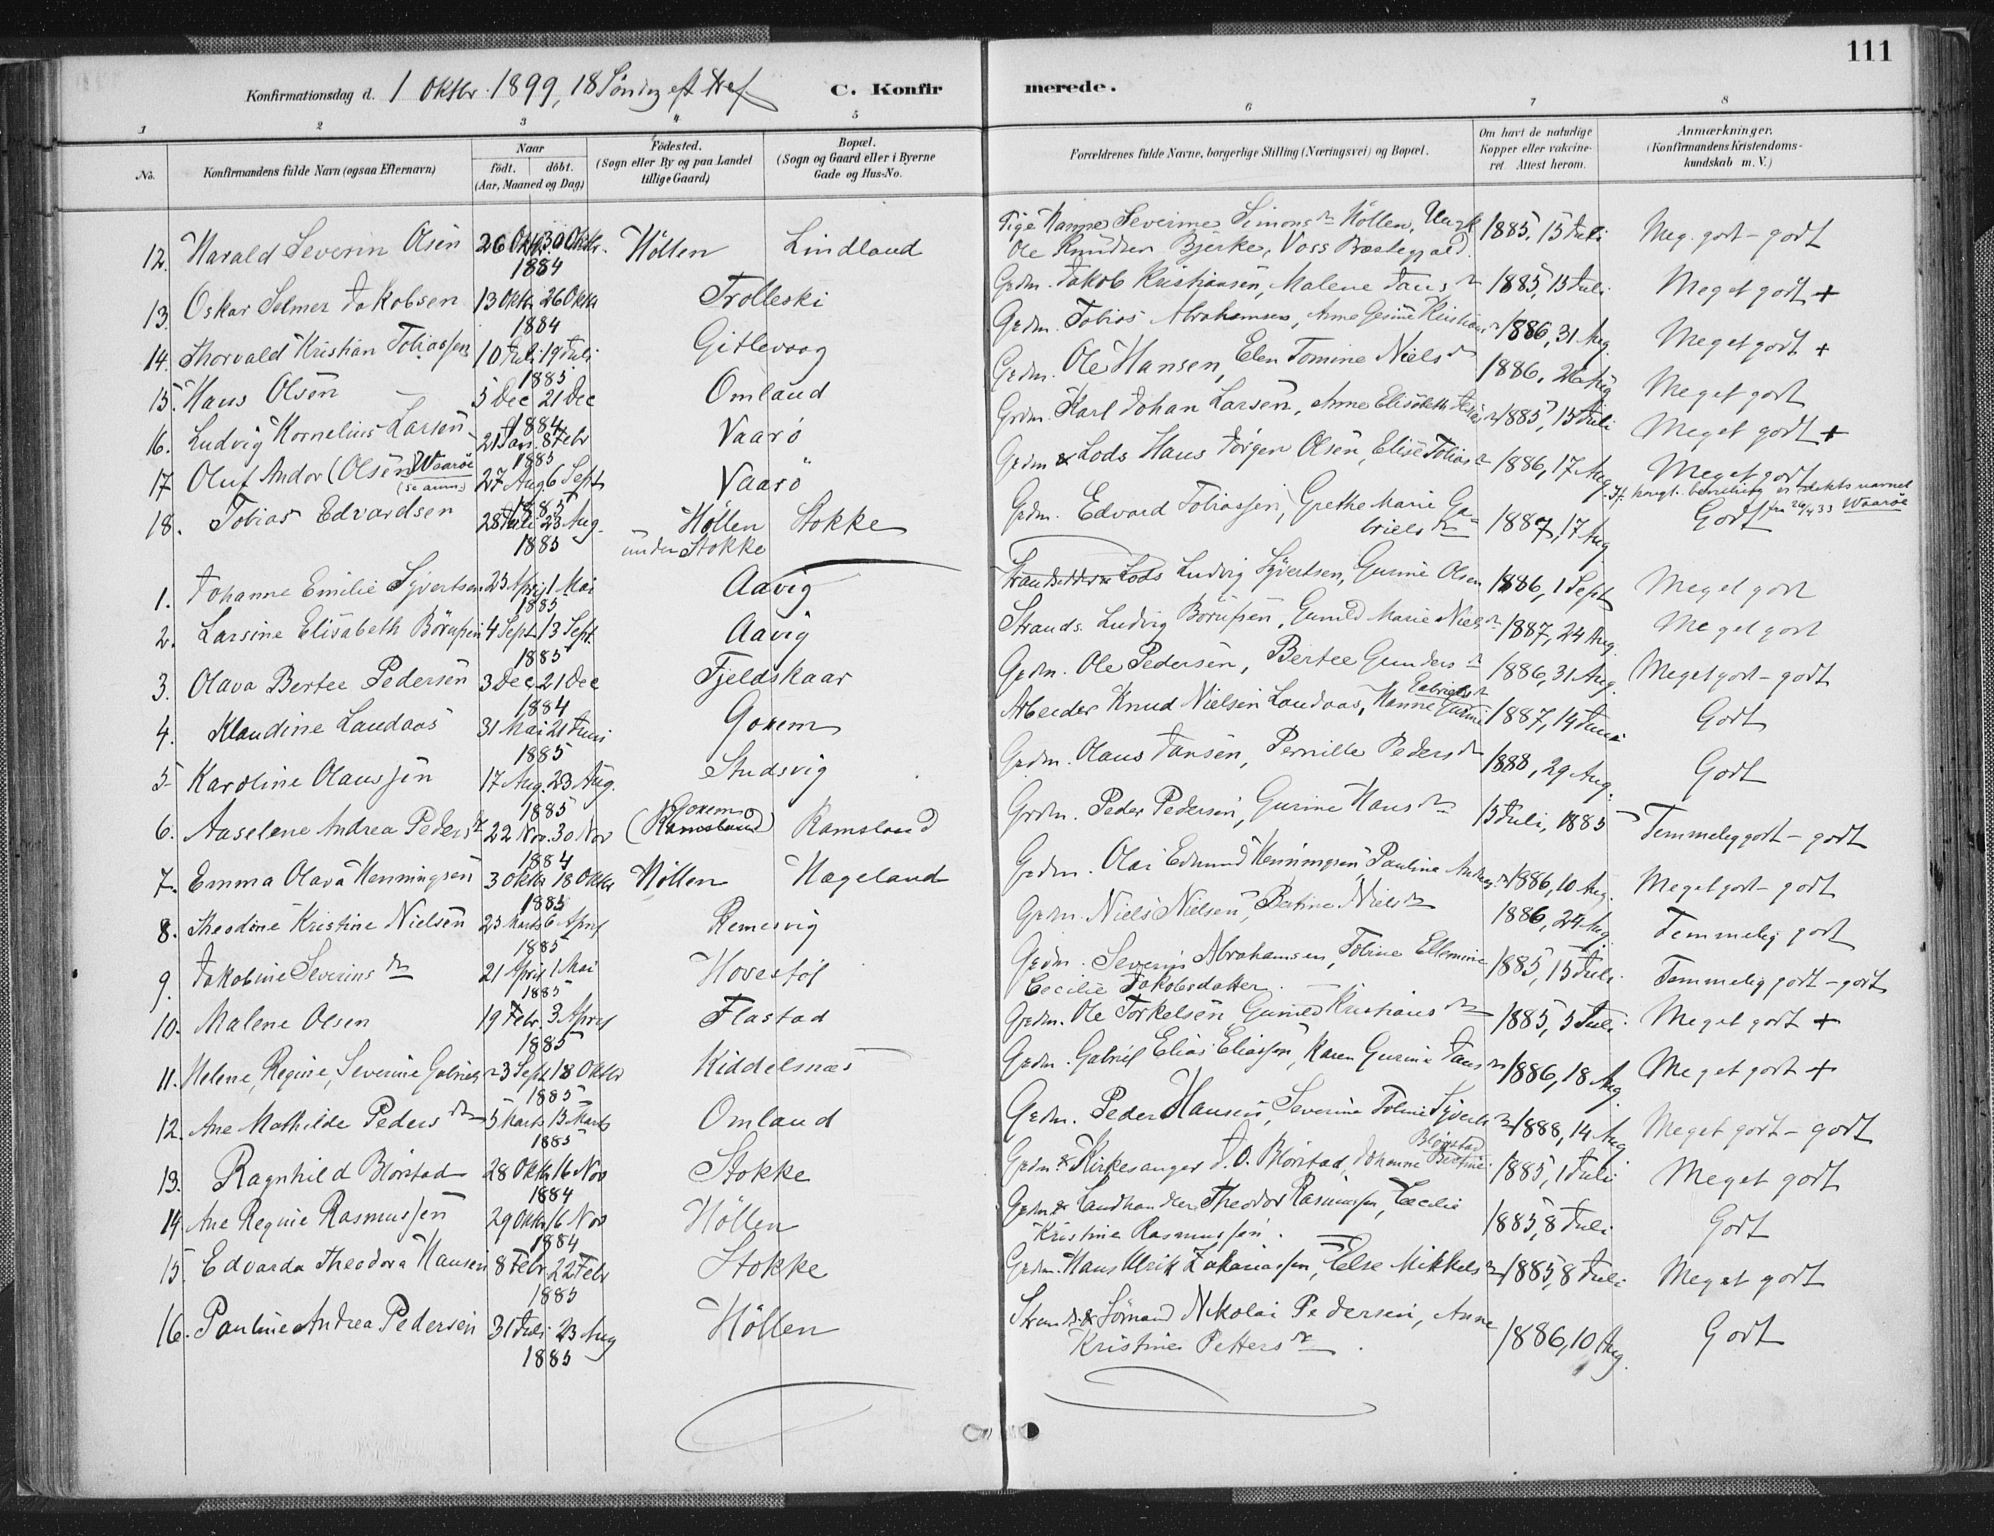 111
Konfirmationsdag d. 1 Oktbr. 1899, 18 Søndag eft Tref C. Konfirmerede.
1 2 3 4 5 6 7 8
No. Konfirmandens fulde Navn (ogsaa Efternavn) Naar født. døbt. (Aar, Maaned og Dag) Fødested. (Sogn eller By og paa Landet tillige Gaard) Bopæl. (Sogn og Gaard eller i Byerne Gade og Hus-No. Forældrenes fulde Navne, borgerlige Stilling (Næringsvei) og Bopæl. Om havt de naturlige Kopper eller vakcineret Attest herom. Anmærkninger. (Konfirmandens Kristendomskundskab m. V.)
12. Harald Severin Olsen 26 Oktbr. 30 Oktbr. 1884 Höllen Lindland Pige Hanne Severine Simonsdr Höllen, Ungk Ole Knudsen Bjerke, Voss Præstegjæld. 1885, 15 Juli Meg. godt - godt
13. Oskar Selmer Jakobsen 13 Oktbr 26 Oktbr 1884 Trolleski Grdm. Jakob Kristiansen, Malene Jansdr 1885, 15 Juli Meget godt +
14. Thorvald Kristian Tobiassen 10 Juli 19 Juli 1885 Gitlevaag Grdm. Tobias Abrahamsen, Anne Gesine Kristiansdr 1886, 31 Aug. Meget godt +
15. Hans Olsen 5 Dec 21 Dec 1884 Omland Grdm. Ole Hansen, Elen Tomine Nielsdr 1886, 26 Aug Meget godt
16. Ludvig Kornelius Larsen 21 Jan. 8 Febr 1885 Vaarö Grdm. Karl Johan Larsen, Anne Elisabeth 1885, 15 Juli Meget godt +
17 Oluf Andor (Olsen) Waarøe (se anm.) 27 Aug 6 Sept 1885 Vaarö Grdm & Lods Hans Jörgen Olsen, Elise Tobiasdr 1886, 17 Aug. Meget godt
If. kngl. bevilling er slekts navnet fra 26/4 33 Waarøe
18. Tobias Edvardsen 28 Juli 23 Aug. 1885 Höllen under Stokke Stokke Grdm. Edvard Tobiassen, Grethe Marie Gabrielsdr 1887, 17 Aug Godt
1. Johanne Emilie Syvertsen 23 April 1 Mai 1885 Aavig Strandsidder Lods Ludvig Syvertsen, Gurine Olsen 1886, 1 Sept Meget godt
2. Larsine Elisabeth Börufsen 4 Sept. 13 Sept. 1885 Aavig Strands. Ludvig Börufsen, Gunild Marie Nielsdr 1887, 24 Aug. Meget godt
3. Olava Bertee Pedersen 3 Dec 21 Dec 1884 Fjeldskaar Grdm. Ole Pedersen, Bertee Gundersdr 1886, 31 Aug. Meget godt - godt
4. Klaudine Landaas 31 Mai 21 Juni 1885 Gonem Arbeider Knud Nielsen Landaas, Hanne Gabrielsdr 1887, 14 Juni Godt
5 Karoline Olaussen 17 Aug. 23 Aug. 1885 Studsvig Grdm. Olaus Jansen, Pernille Pedersdr 1888, 29 Aug. Godt
6. Aaselene Andrea Pedersdr 22 Nov. 30 Nov 1884 Gonem (Ramsland) Ramsland Grdm. Peder Pedersen, Gurine Hansdr 15 Juli, 1885 Temmelig godt - godt
7. Emma Olava Henningsen 3 Oktbr 18 Oktbr 1885 Höllen Hageland Grdm. Olai Edmund Henningsen Pauline 1886, 10 Aug. Meget godt - godt
8. Theodine Kristine Nielsen 23 Marts 6 April 1885 Remesvig Grdm. Niels Nielsen, Bertine Nielsdr 1886, 24 Aug. Temmelig godt
9. Jakobine Severinsdr 21 April 1 Mai 1885 Hovestöl Grdm. Severin Abrahamsen, Tobine Ellemine Cecilie Jakobsdatter. 1885, 15 Juli. Temmelig godt - godt
10. Malene Olsen 19 Febr. 3 April 1885 Flastad Grdm. Ole Torkelsen Gunild Kristiansdr 1885, 5 Juli. Meget godt +
11. Helene, Regine, Severine Gabrielsdr 3 Sept 18 Oktbr 1885 Kiddelsnæs Grdm. Gabriel Elias Eliassen, Karen Gurine Jansdr 1886, 18 Aug Meget godt +
12. Ane Mathilde Pedersdr 5 Marts 15 Marts 1885 Omland Grdm. Peder Hansen, Severine Toline Syvertsdr 1888, 14 Aug Meget godt - godt
13. Ragnhild Blörstad 28 Oktbr 16 Nov 1884 Stokke Grdm & Kirkesanger J. O. Blörstad, Johanne Bertine Blörstad 1885, 1 Juli Meget godt
14 Ane Regine Rasmussen 29 Oktbr 16 Nov 1884 Höllen Grdm & Landhandler Theodor Rasmussen, Cecilie Kristine Rasmussen. 1885, 8 Juli Godt
15. Edvarda Theodora Hansen 8 Febr. 22 Febr 1885 Stokke Grdm. Hans Ulrik Zakariassen, Else Mikkelsdr 1885, 8 Juli Meget godt
16. Pauline Andrea Pedersen 31 Juli 23 Aug 1885 Höllen Strands. & Sömand Nikolai Pedersen, Anne Kristine Pettersdr. 1886, 10 Aug. Godt